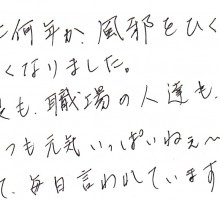 に何年か、風邪をひく
くなりました。
も、職場の人達も、
つも元気いっぱいねぇ〜
て、毎日言われています